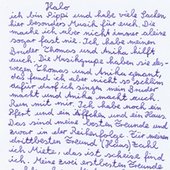 Halo
ich bin Pippi und habe viele Sachen
hier besonders Musik für euch. Die
macht ich aber nicht immer alleine
sogar fast nie. Ich habe meinen
Bruder Thomas und Anika hilft
auch. Die Musikgruppe haben sie des-
wegen Thomas und Anika genannt,
das fand ich aber nicht so schlimm
dafür darf ich singen mein Bruder
macht und Anika macht auch.
Nun mit mir. Ich habe noch ein
Pferd und ein Affchen und ein Haus.
Das sind meine besten Freunde und
zwar in der Reihenfolge. Für meinen
drittbesten Freund (Haus) Zahl
ich Miete, das ist scheise find
ich. Meine zwei erstbesten Freunde